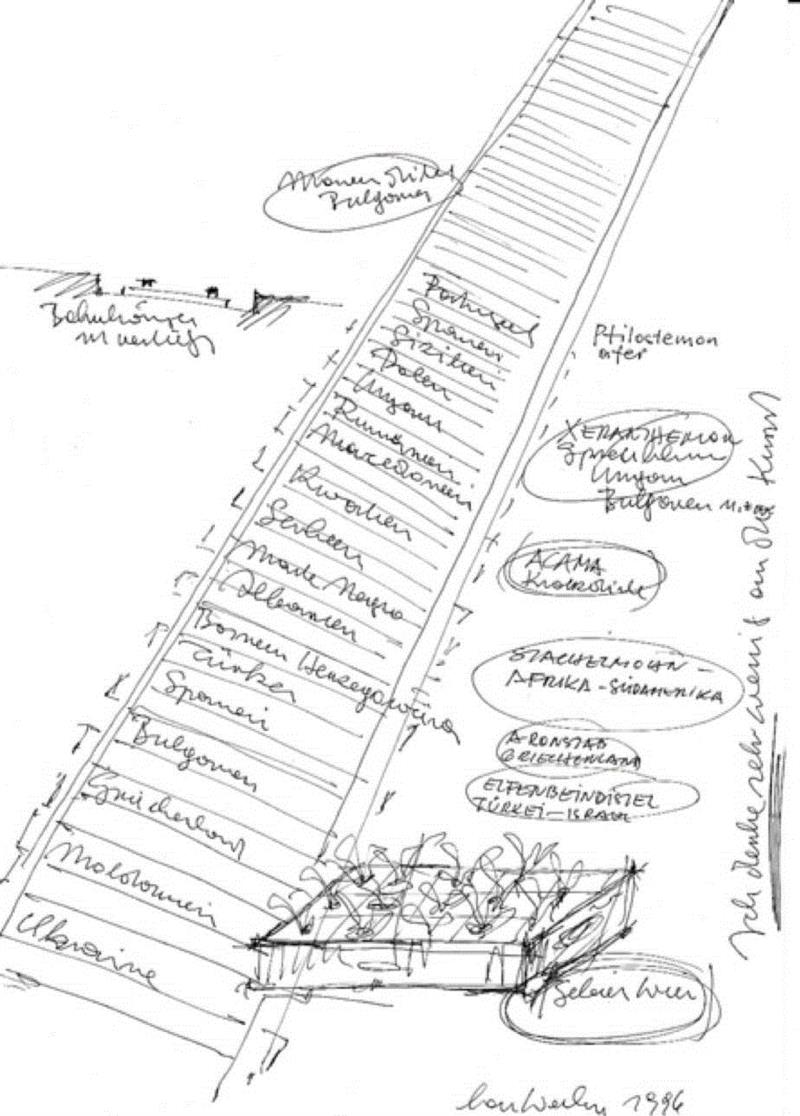 Bulgarien
Portugal
Spanien
Sizilien
Polen
Ungarn
Rumänien
Macedonien
Kroatien
Serbien
Monte Negro
Albanien
Bosnien Herzegowina
Türkei
Spanien
Bulgarien
Griechenland
Moldawien
Ukraine
Ptilostemon
afer
XERANTHEMUM
Ungarn
Bulgarien
STACHELMOHN –
AFRIKA – SÜDAMERIKA
ARONSTAB
GRIECHENLAND
ELFENBEINDISTEL
TÜRKEI – ISRAEL
Ich denke sehr wenig an die Kunst
1996